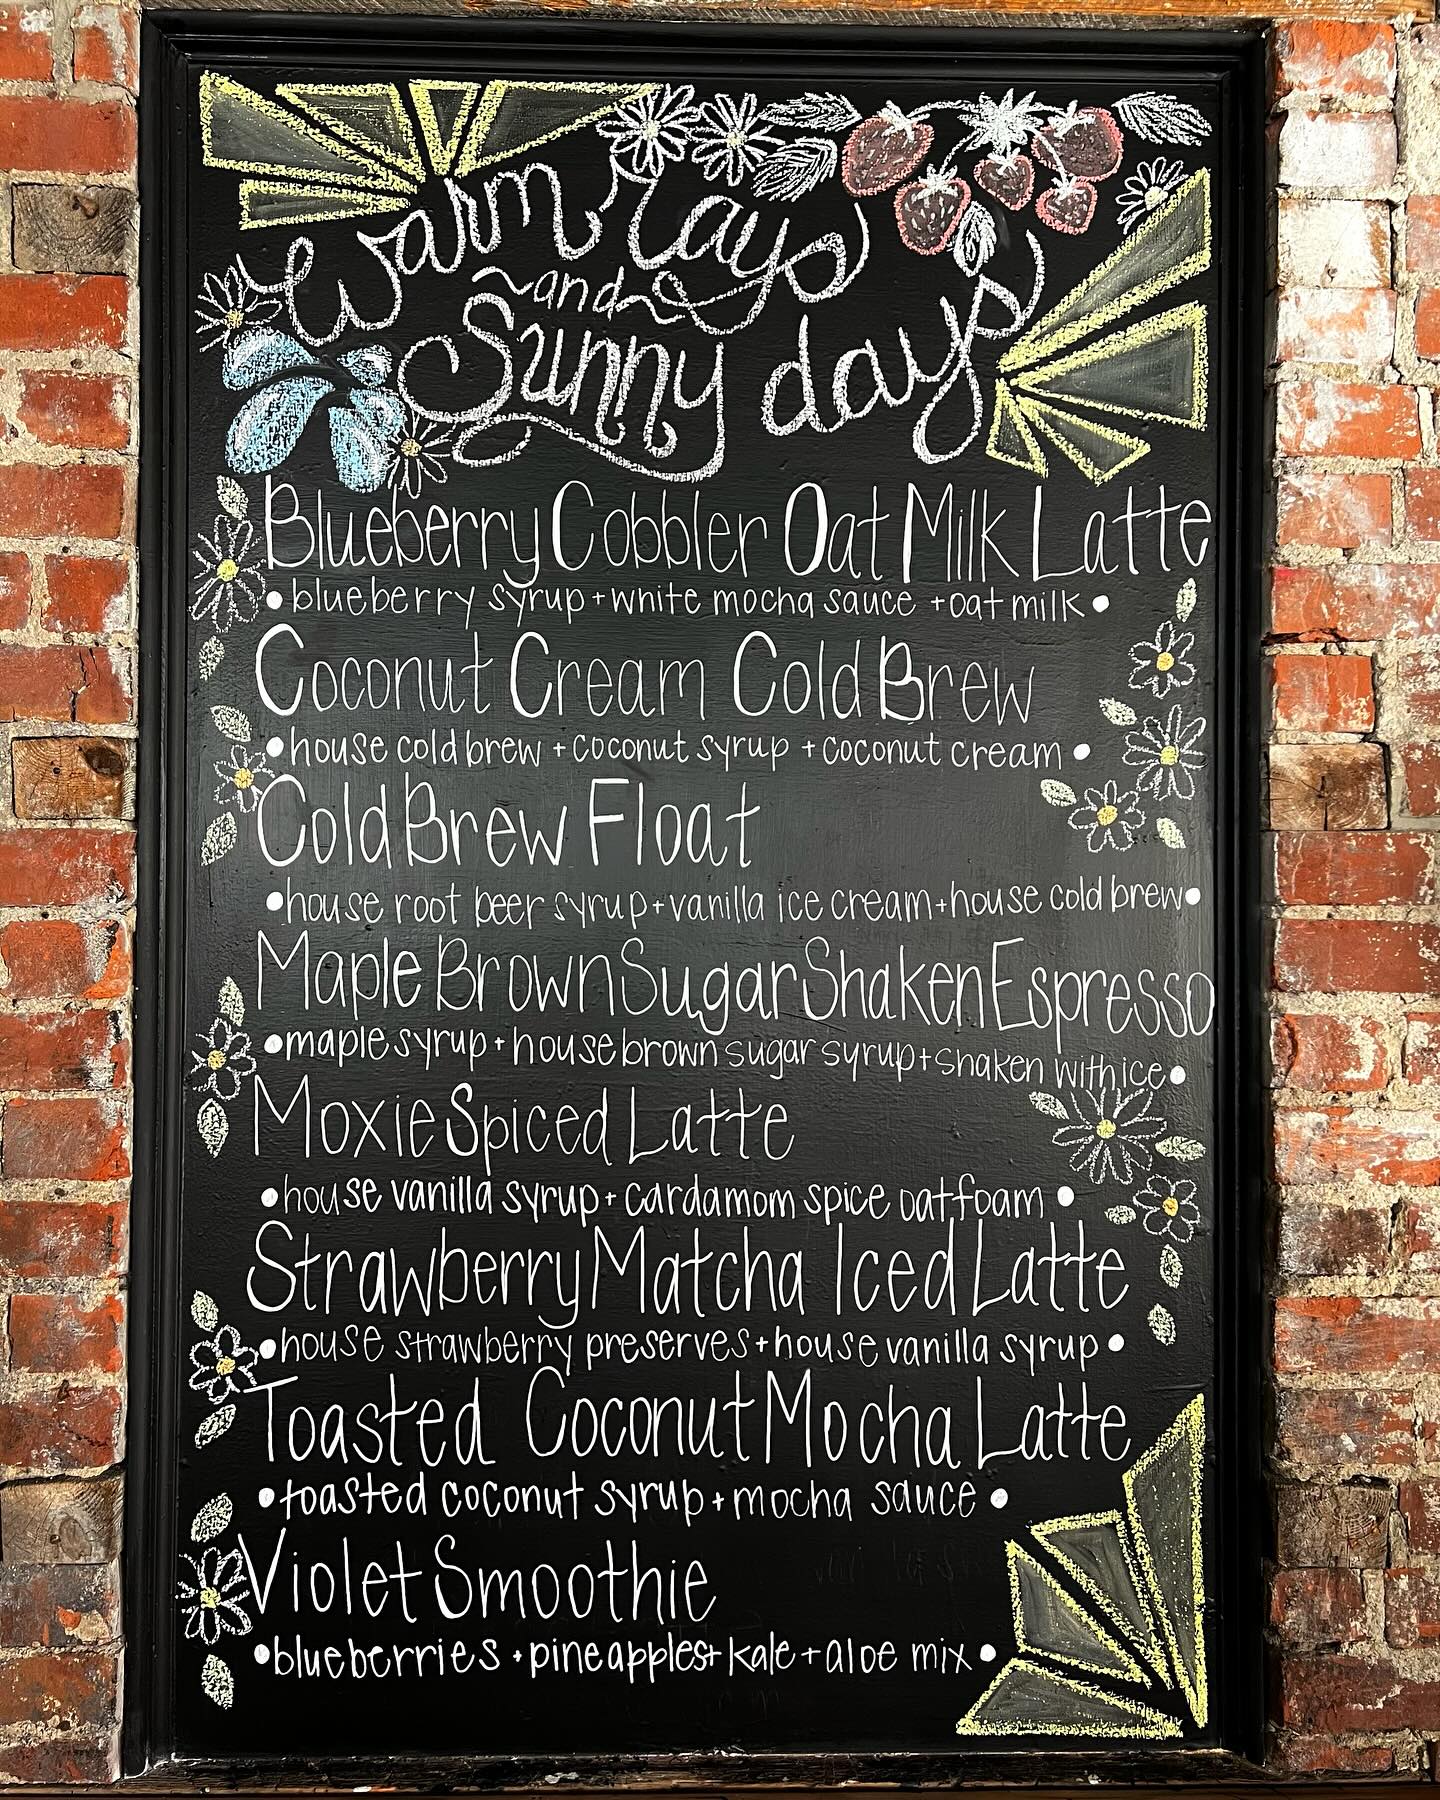 Warm rays
~and~
Sunny days
Blueberry Cobbler Oat Milk Latte
• blueberry syrup + white mocha sauce + oat milk •
Coconut Cream Cold Brew
• house cold brew + coconut syrup + coconut cream •
Cold Brew Float
• house root beer syrup + vanilla ice cream + house cold brew •
Maple Brown Sugar Shaken Espresso
• maple syrup + house brown sugar syrup + shaken with ice •
Moxie Spiced Latte
• house vanilla syrup + cardamom spice oat foam •
Strawberry Matcha Iced Latte
• house strawberry preserves + house vanilla syrup •
Toasted Coconut Mocha Latte
• toasted coconut syrup + mocha sauce •
Violet Smoothie
• blueberries + pineapples + kale + aloe mix •